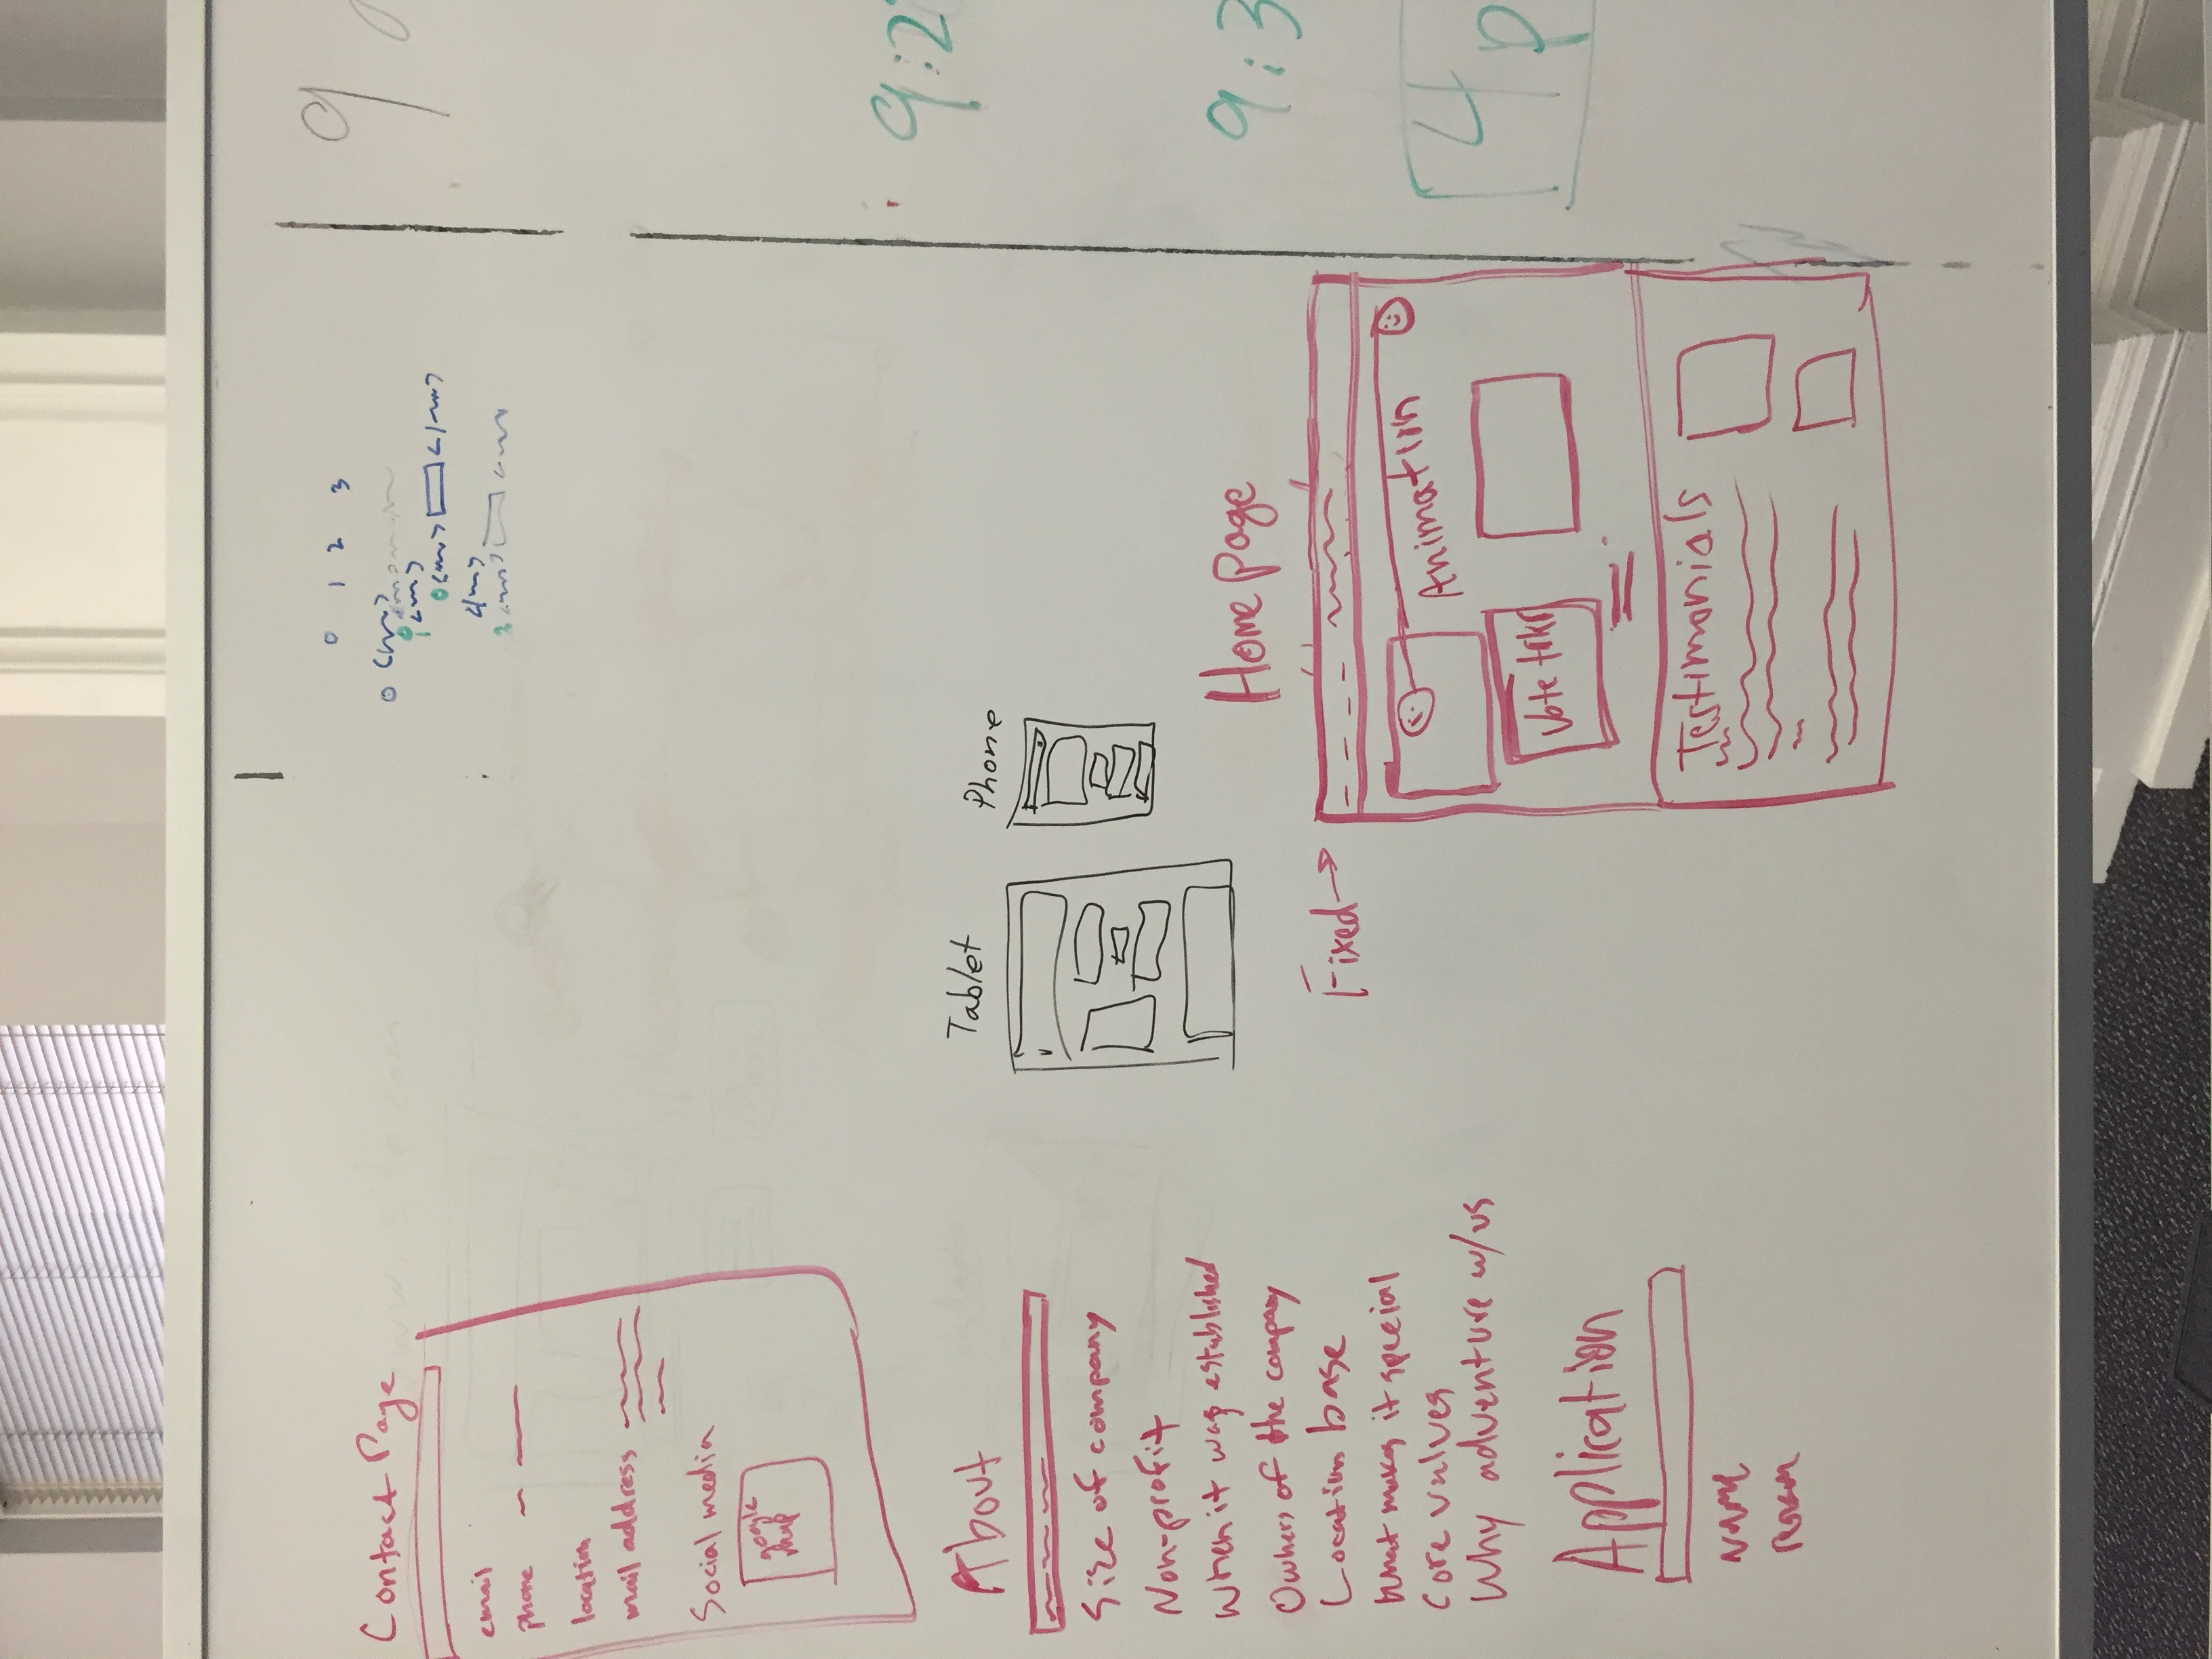 Contact Page
email
phone
location
mail address
Social media
google
map
About
Size of company
Non-profit
When it was established
Owners of the company
Location base
What makes it special
Core values
Why adventure w/us
Application
NAME
0 1 2 3
0
1
0
3
Tablet
Phone
Home page
Fixed →
Animation
Vote
Testimonials
9
9:2
9:3
4p